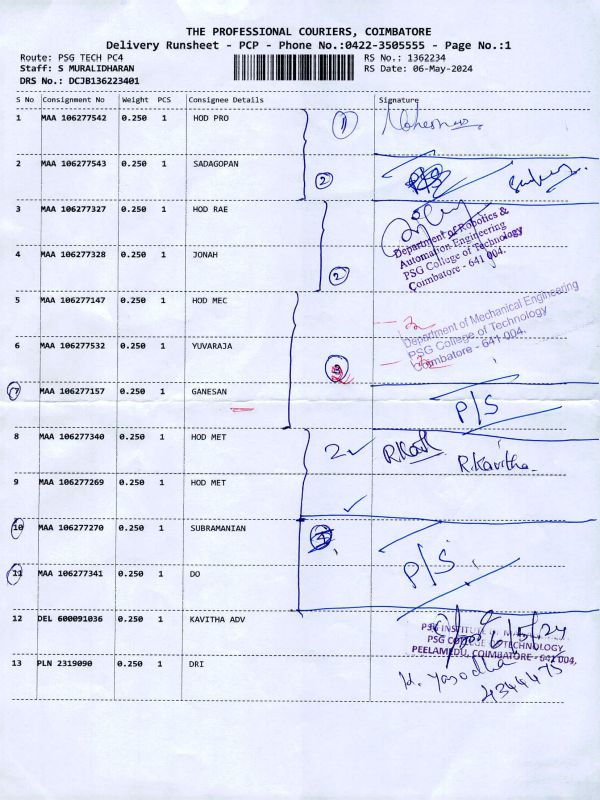 THE PROFESSIONAL COURIERS, COIMBATORE
Delivery Runsheet - PCP - Phone No.:0422-3505555 - Page No.:1
Route: PSG TECH PC4
Staff: S MURALIDHARAN
DRS No.: DCJB136223401
RS No.: 1362234
RS Date: 06-May-2024
S No Consignment No Weight PCS Consignee Details Signature
1 MAA 106277542 0.250 1 HOD PRO 1
2 MAA 106277543 0.250 1 SADAGOPAN 2
3 MAA 106277327 0.250 1 HOD RAE
Department of Robotics &
Automation Engineering
PSG College of Technology
Coimbatore - 641 004.
4 MAA 106277328 0.250 1 JONAH 2
5 MAA 106277147 0.250 1 HOD MEC
Department of Mechanical Engineering
PSG College of Technology
Coimbatore - 641 004.
6 MAA 106277532 0.250 1 YUVARAJA
7 MAA 106277157 0.250 1 GANESAN P/S
8 MAA 106277340 0.250 1 HOD MET 2 R.Kavitha
9 MAA 106277269 0.250 1 HOD MET
10 MAA 106277270 0.250 1 SUBRAMANIAN
11 MAA 106277341 0.250 1 DO P/S
12 DEL 600091036 0.250 1 KAVITHA ADV 6/5/24
PSG INSTITUTE
PSG COLLEGE OF TECHNOLOGY
PEELAMEDU, COIMBATORE - 641 004,
13 PLN 2319090 0.250 1 DRI
K. Yasodha
4344475